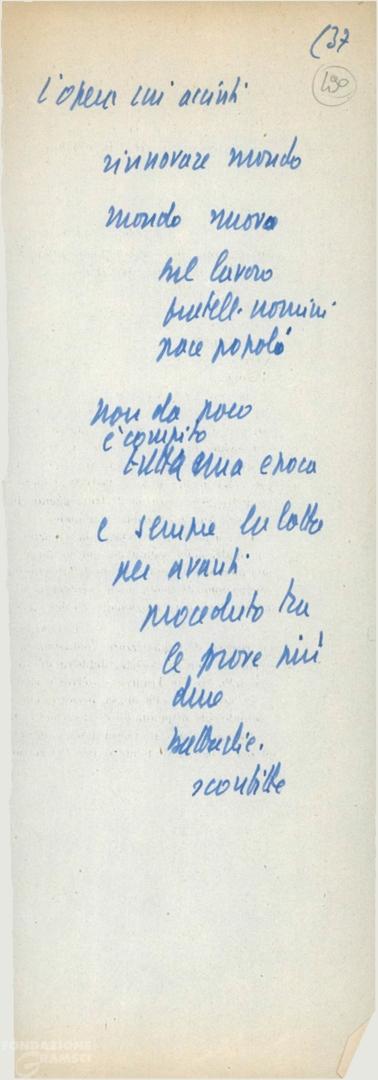 (37
490
L'opera cui accinti
rinnovare mondo
mondo nuovo
nel lavoro
fratelli uomini
pace popoli
non da poco
è compito
tutta una epoca
e sempre la lotta
per avanti
proceduto tra
le prove più
dure
battaglie.
sconfitte
FONDAZIONE
GRAMSCI